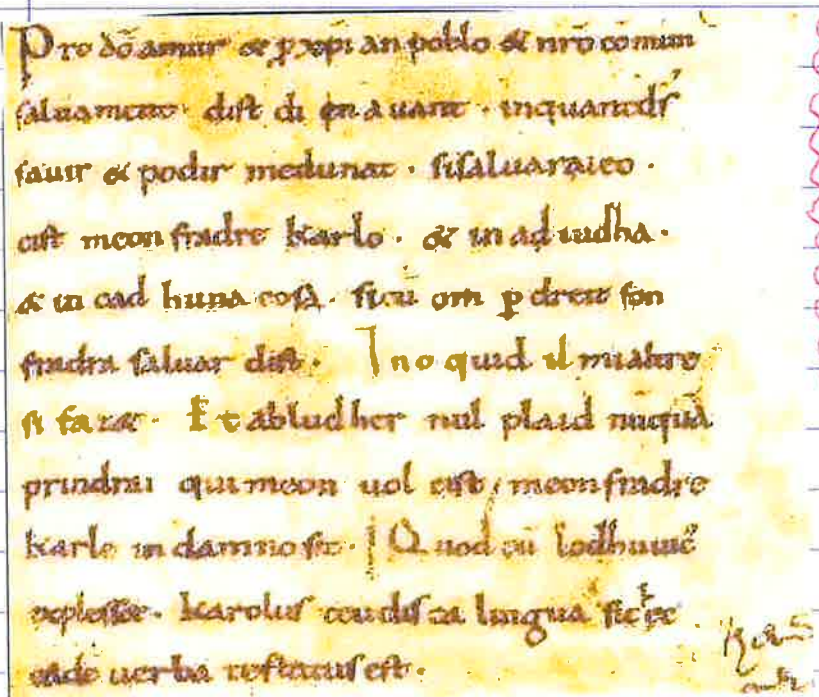 Pro dō amur & p xp̄i an poblo & nrō cōmun
saluament. dist di en auant. inquantd̄s
sauir & podir medunat. sisaluaraieo.
cist meon fradre Karlo. & in ad iudha.
& in cad huna cosa. sicū om p dreit son
fradra saluar dist. Ino quid il mialtre
si fazet. Et abludher nul plaid nūquā
prindrai qui meon uol cist, meonfradre
Karle in damno sit. Quod cū lodhuuic̄
explesset. karolus teudisca lingua sic ec
eade uerba testatus est.